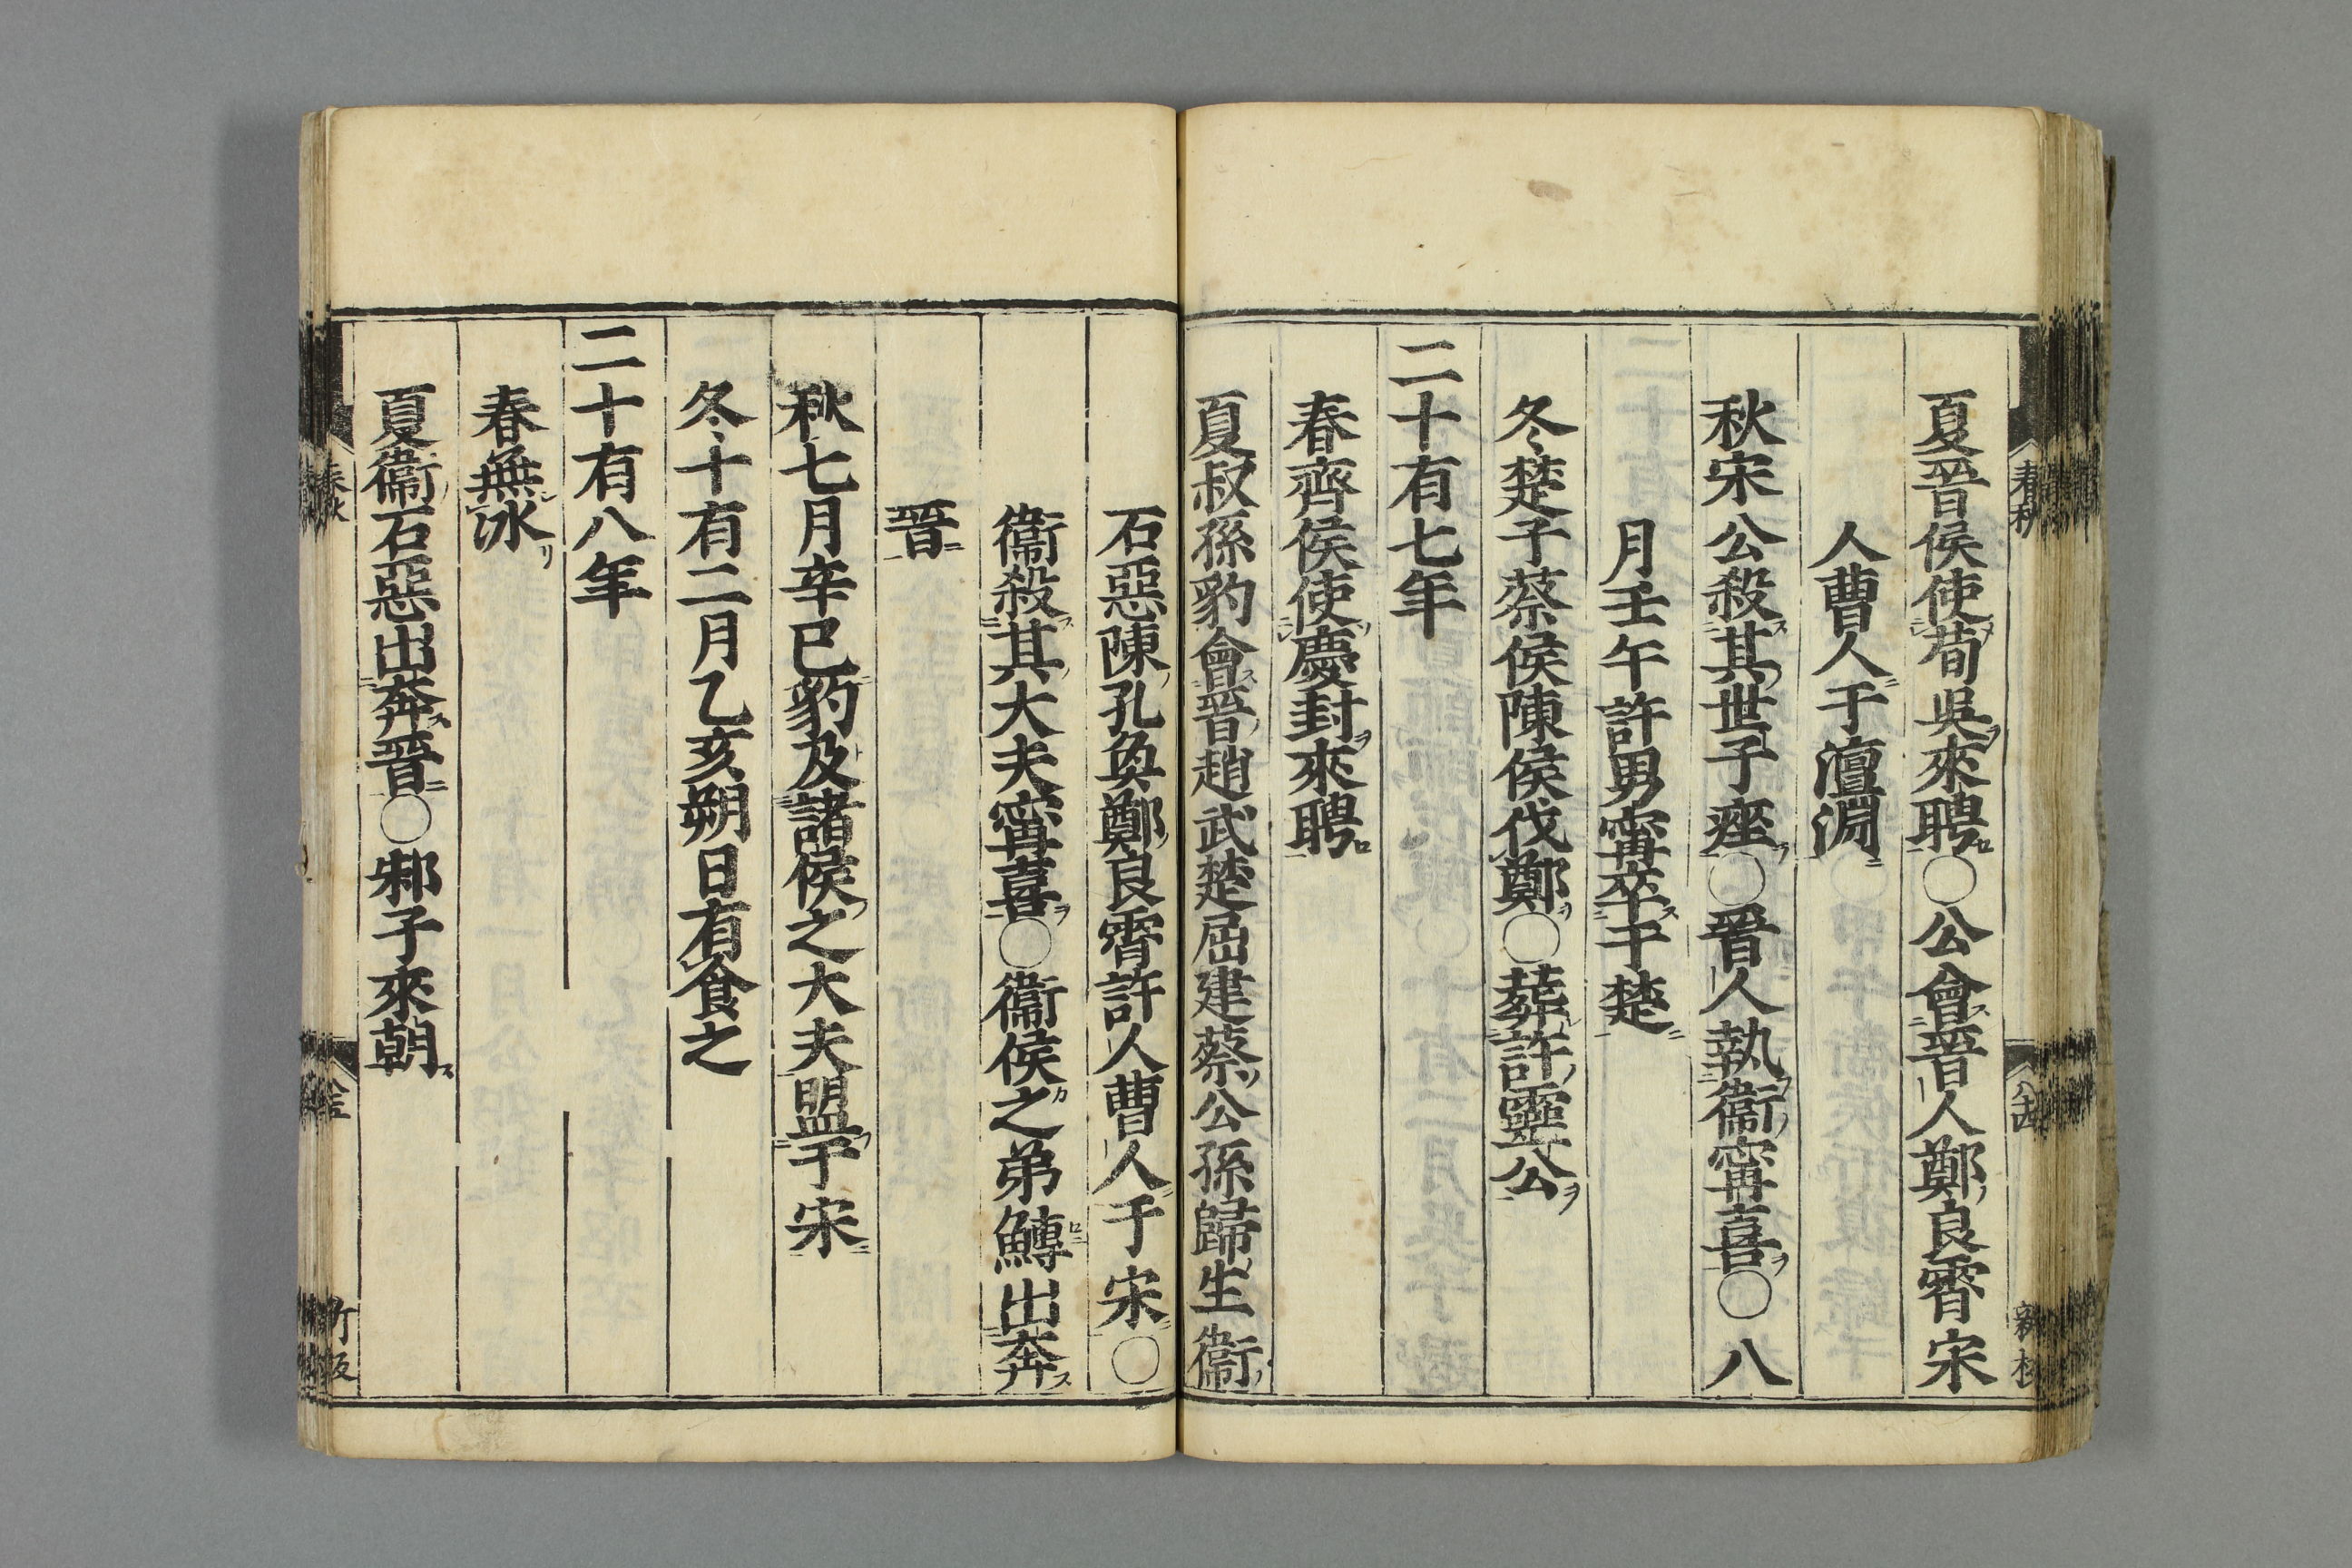 夏晉侯使荀吳來聘○公會晉人鄭良霄宋
人曹人于澶淵
秋宋公殺其世子痤○晉人執衞甯喜○八
月壬午許男甯卒于楚
冬楚子蔡侯陳侯伐鄭○葬許靈公
二十有七年
春齊侯使慶封來聘
夏叔孫豹會晉趙武楚屈建蔡公孫歸生衞
石惡陳孔奐鄭良霄許人曹人于宋○
衞殺其大夫甯喜○衞侯之弟鱄出奔
晉
秋七月辛巳豹及諸侯之大夫盟于宋
冬十有二月乙亥朔日有食之
二十有八年
春無冰
夏衞石惡出奔晉○邾子來朝
春秋